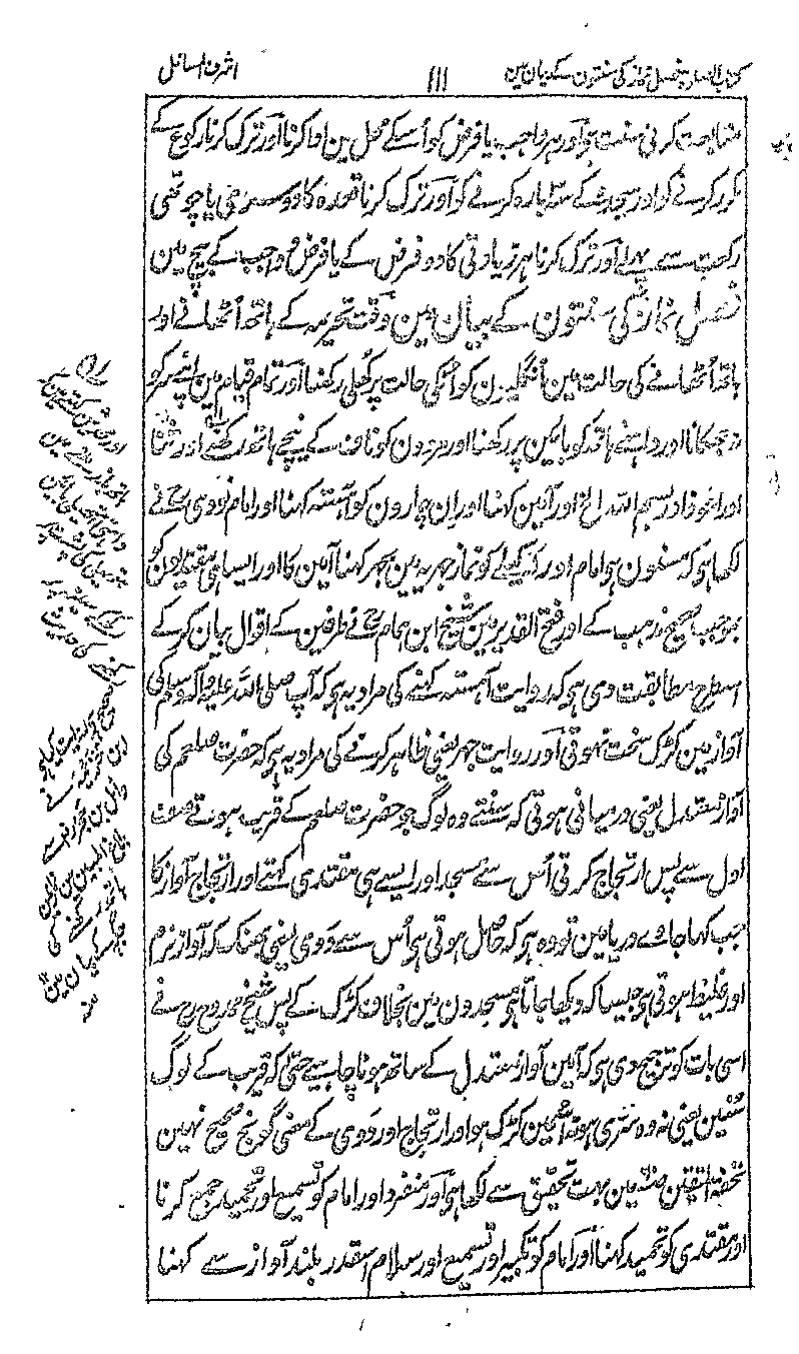 کتاب الصلوٰۃ فصل نماز کی سنتون کے بیان مین
۱۱۱
اشرف المسائل
متابعت کرنی سنت ہو اور ہر واجب یا فرض کو اُسکے محل مین ادا کرنا اور ترک کرنا رکوع کے
مکرر کرنے کو اور سجدے کے سہ بارہ کرنے کو اور ترک کرنا قعدہ کا دوسری یا چوتھی
رکعت سے پہلے اور ترک کرنا ہر زیادتی کا دو فرض کے یا فرض و واجب کے بیچ مین
فصل نماز کی سنتون کے بیان مین وقت تحریمہ کے ہاتھ اُٹھانے اور
ہاتھ اُٹھانے کی حالت مین اُنگلیون کو اُنکی حالت پر کُھلی رکھنا اور تمام قیام مین اپنے سر کو
نہ جھکانا اور داہنے ہاتھ کو بائین پر رکھنا اور مردون کو ناف کے نیچے ہاتھ رکھنے اور ثنا
اور اعوذ اور بسم اللہ الخ اور آمین کہنا اور ان چارون کو آہستہ کہنا اور امام نووی رح نے
لکھا ہو کہ مسنون ہو امام اور اکیلے کو نماز جہریہ مین بجہر کہنا آمین کا اور ایسا ہی مقتدیون کو
بموجب صحیح مذہب کے اور فتح القدیر مین شیخ ابن ہمام رح نے طرفین کے اقوال بیان کر کے
اسطرح مطابقت دی ہو کہ روایت آہستہ کہنے کی مراد یہ ہو کہ آپ صلی اللہ علیہ وآلہ وسلم کی
آواز مین کڑک سخت نہوتی اور روایت جہر یعنی ظاہر کرنے کی مراد یہ ہو کہ حضرت صلعم کی
آواز معتدل یعنی درمیانی ہوتی کہ سنتے وہ لوگ جو حضرت صلعم کے قریب ہوتے صف
اول سے پس ارتجاج کرتی اُس سے مسجد اور ایسے ہی مقتدی کہتے اور ارتجاج آواز کا
جب کہا جاوے دریا مین تو وہ ہو کہ حاصل ہوتی ہو اُس سے دوی یعنی بھنک کہ آواز نرم
اور غلیظ ہوتی ہو جیسا کہ دیکھا جاتا ہو مسجدون مین بخلاف کڑک کے پس شیخ ممدوح رح نے
اسی بات کو ترجیح دی ہو کہ آمین آواز معتدل کے ساتھ ہونا چاہیے حتی کہ قریب کے لوگ
سُنین یعنی نہ وہ سرّی ہو نہ اُسمین کڑک ہو اور ارتجاج اور دوی کے معنی گونج صحیح نہین
تحفۃ المتقین مین بہت تحقیق سے لکھا ہو اور منفرد اور امام کو تسمیع اور تحمید جمع کرنا
اور مقتدی کو تحمید کہنا اور امام کو تکبیر اور تسمیع اور سلام اسقدر بلند آواز سے کہنا
اور محدثین کہتے ہین کہ
ہاتھ باندھنے مین
داہنی ہتھیلی بائین
ہتھیلی کی پشت پر
رکھ کے سینہ پر
رکھنے کی حدیث
صحیح ہو روایت کیا ہو
ابن خزیمہ نے
وائل بن حجر رض سے